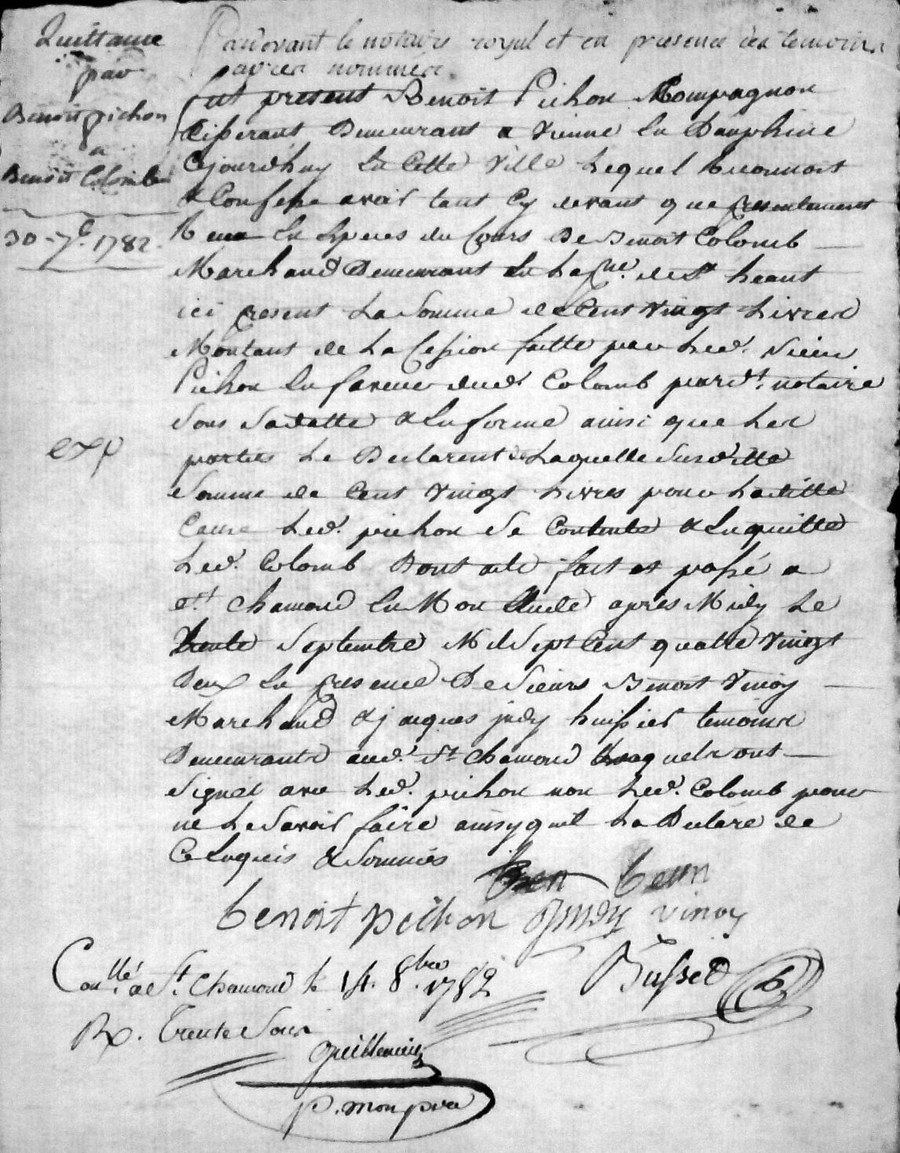 Quittance
par
Benoit pichon
a
Benoit Colomb
30 7.e 1782.
exp
Pardevant le notaire royal et en presence des temoins
apres nommes
fut present Benoit Pichon Compagnon
demeurant a Vienne en Dauphine
Cejourdhuy en Cette Ville Lequel Reconnoit
& Confesse avoir tant Cy devant que presentement
Recu en Especes du Cours De Benoit Colomb
Marchand Demeurant en La de St heant
ici present La Somme de Cent Vingt Livres
Montant de La Cession faitte par Led. Sieur
Pichon En faveur dud. Colomb pard.t notaire
Sous Sa datte & En forme ainsi que Les
parties Le Declarent de Laquelle Susditte
Somme de Cent Vingt Livres pour Laditte
Cause Led. pichon Se Contente & En quitte
Led. Colomb Dont acte fait et passé a
St. Chamond En Mon Etude apres Midy Le
Trente Septembre Mil Sept Cent quatre Vingt
Deux En presence De Sieurs Benoit Vinoy
Marchand & jacques judy huissier temoins
Demeurants aud. St Chamond Lesquels ont
Signes avec Led. pichon non Led. Colomb pour
ne Le Savoir faire ainsy quil La Declare de
Ce Enquis & Sommés
Benoit pichon Judy Vinoy
Con.llé a St. Chamond le 14. 8.bre 1782
Rx. Trente Sous
p. mon pere